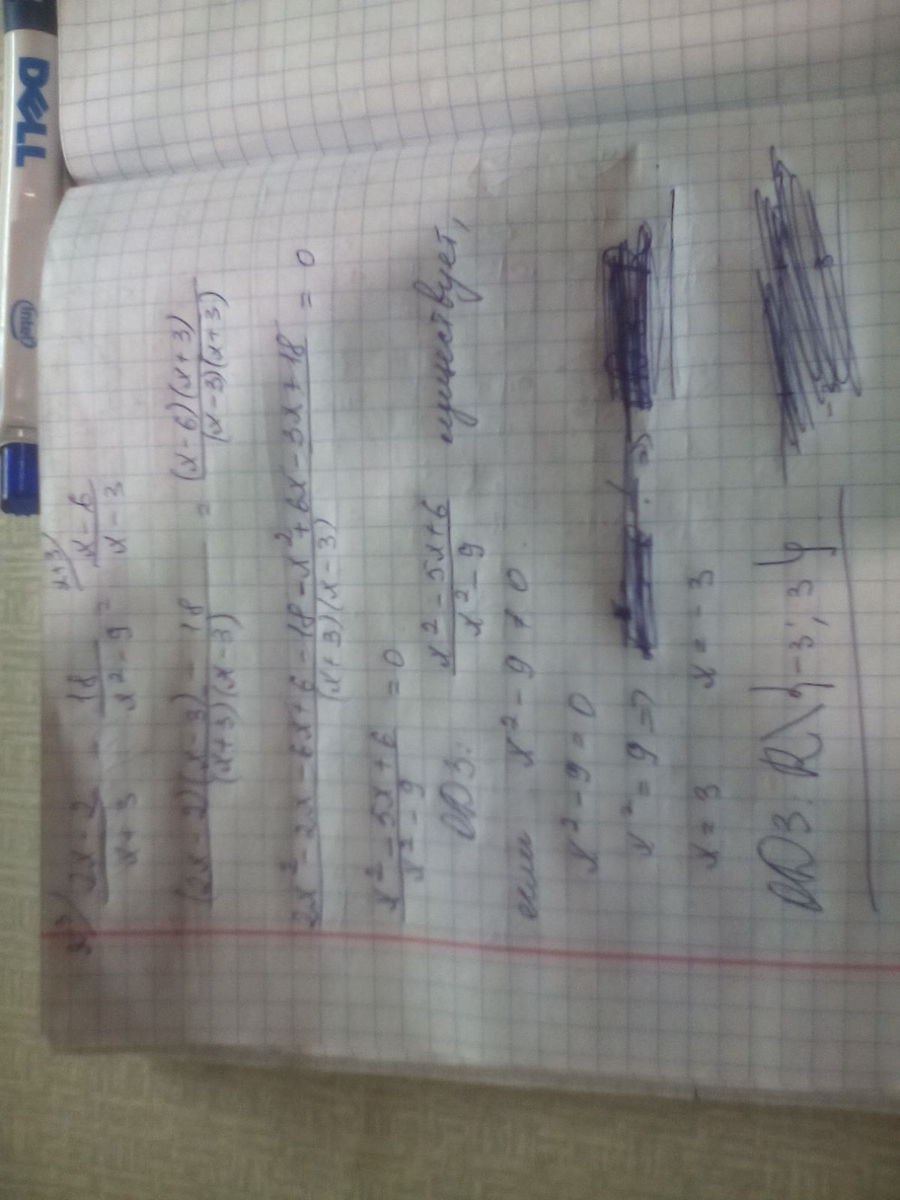 DELL
intel
x-3) (2x-2)/(x+3) - 18/(x²-9) = x+3) (x-6)/(x-3)
((2x-2)(x-3) - 18)/((x+3)(x-3)) = ((x-6)(x+3))/((x-3)(x+3))
(2x²-2x-6x+6-18-x²+6x-3x+18)/((x+3)(x-3)) = 0
(x²-5x+6)/(x²-9) = 0
ОДЗ: (x²-5x+6)/(x²-9) существует,
если x²-9≠0
x²-9=0
x²=9 =>
x=3 x=-3
ОДЗ: R\{-3; 3}